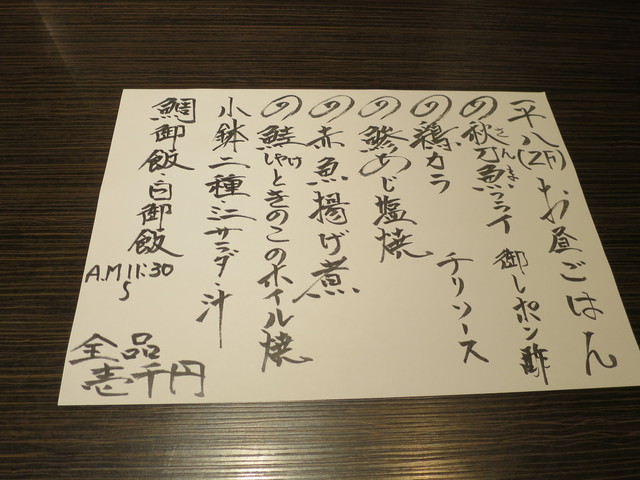 平八(2F)お昼ごはん
の秋刀魚フライ 御しポン酢
さんま
の鶏カラ チリソース
の鯵あじ塩焼
の赤魚揚げ煮
の鮭しゃけときのこのホイル焼
小鉢二種・ミニサラダ・汁
鯛御飯・白御飯
A.M 11:30
〜
全品
壱千円